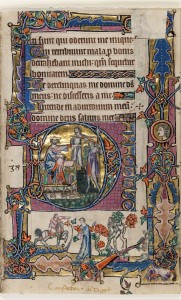 sunt qui oderunt me inique
Qui retribuunt mala p bonis
detrahebant michi: qm sequebar
bonitatem
Ne derelinquas me domine deus
meus: ne discesseris a me
Intende in adiutorium meum:
domine deus salutis mee